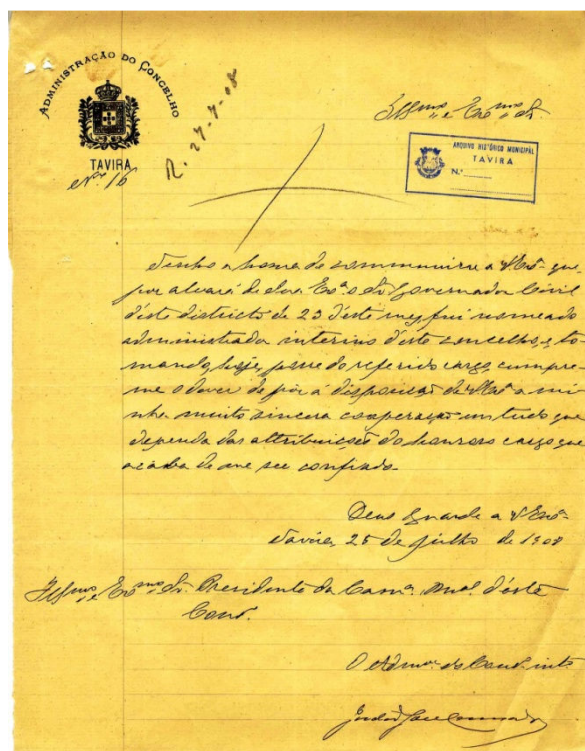 ADMINISTRAÇÃO DO CONCELHO
TAVIRA
Nº 16
R. 27-7-08
Illmo e Exmo Sr.
ARQUIVO HISTÓRICO MUNICIPAL
TAVIRA
N.º
Tenho a honra de communicar a V. Exª que
por alvará de Sua Exª o Sr. Governador Civil
d'este districto de 23 d'este mez, fui nomeado
administrador interino d'este concelho, e to-
mando, hoje, posse do referido cargo, cumpre-
me o dever de pôr á disposição de V. Exª a mi-
nha muito sincera cooperação em tudo que
dependa das attribuições do honroso cargo que
acaba de me ser confiado.
Deus Guarde a V. Exª
Tavira, 25 de julho de 1908
Illmo e Exmo Sr. Presidente da Camª Mual d'este
Conc.
O Admor do Conc. into